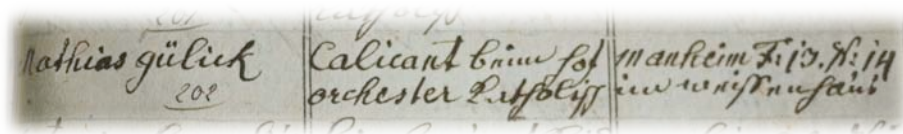 Mathias gülick
202
Calicant beim hof
orchester Katholiss
manheim F: 13. N: 14
im weissenhaus